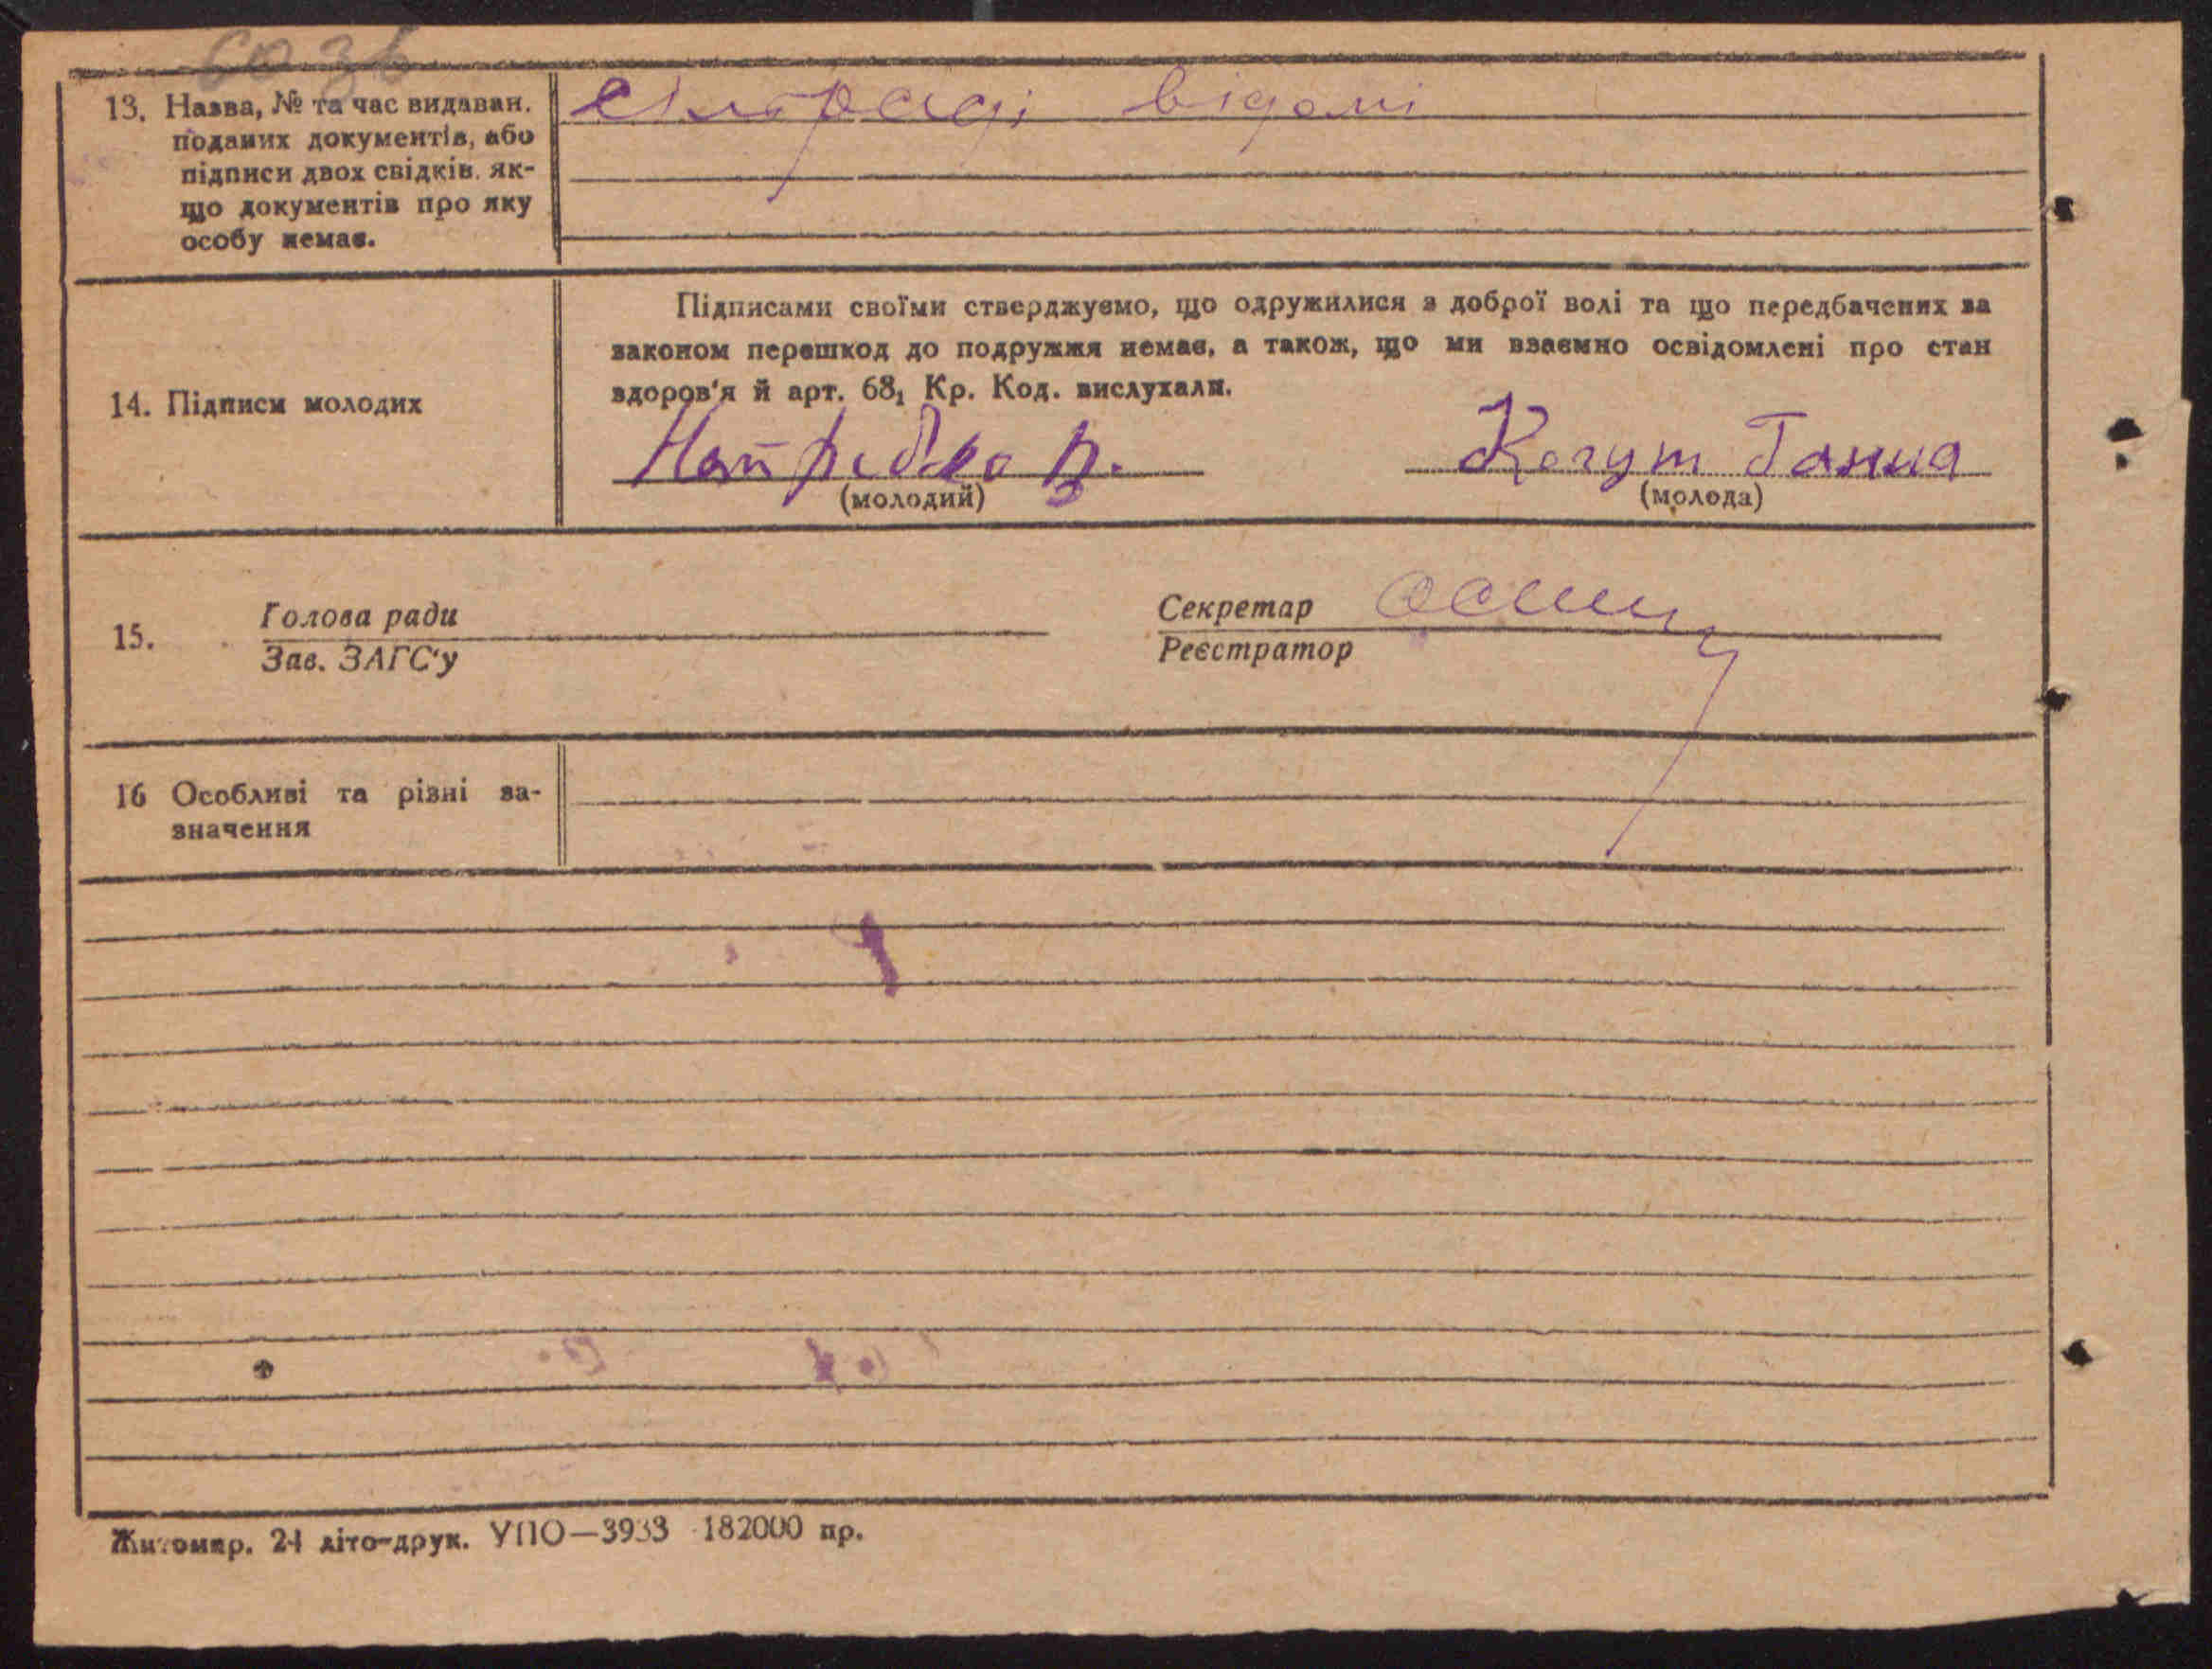 13. Назва, № та час видаван.
поданих документів, або
підписи двох свідків, як-
що документів про яку
особу немає.
сільраді відомі
Підписами своїми стверджуємо, що одружилися з доброї волі та що передбачених за
законом перешкод до подружжя немає, а також, що ми взаємно освідомлені про стан
здоров'я й арт. 68₁ Кр. Код. вислухали.
14. Підписи молодих
Когут Ганна
(молодий) (молода)
15. Голова ради
Зав. ЗАГС'у
Секретар
Реєстратор
16 Особливі та різні за-
значення
Житомир. 24 літо-друк. УПО—3933 182000 пр.